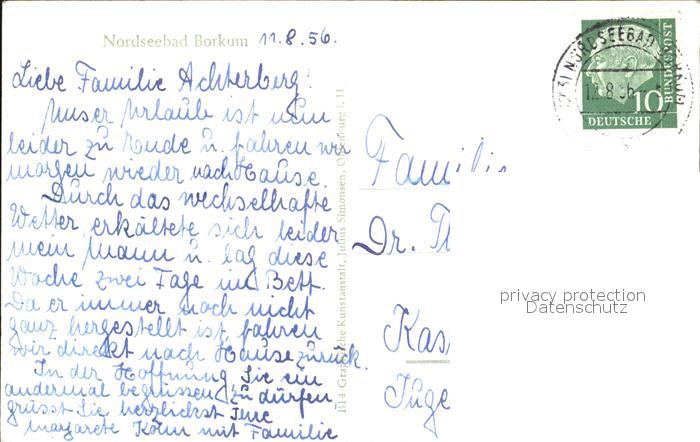 Nordseebad Borkum 11.8.56.
Liebe Familie Achterberg!
Unser Urlaub ist nun
leider zu Ende u. fahren wir
morgen wieder nach Hause.
Durch das wechselhafte
Wetter erkältete sich leider
mein Mann u. lag diese
Woche zwei Tage im Bett.
Da er immer noch nicht
ganz hergestellt ist, fahren
wir direkt nach Hause zurück.
In der Hoffnung Sie ein
andermal begrüssen zu dürfen
grüsst Sie herzlichst Ihre
Margarete Köhn mit Familie
B14 Graphische Kunstanstalt, Julius Simonsen, Oldenburg i. H.
Familie
Dr.
Kas
Juge
NORDSEEBAD BORKUM
10
DEUTSCHE
BUNDESPOST
privacy protection
Datenschutz